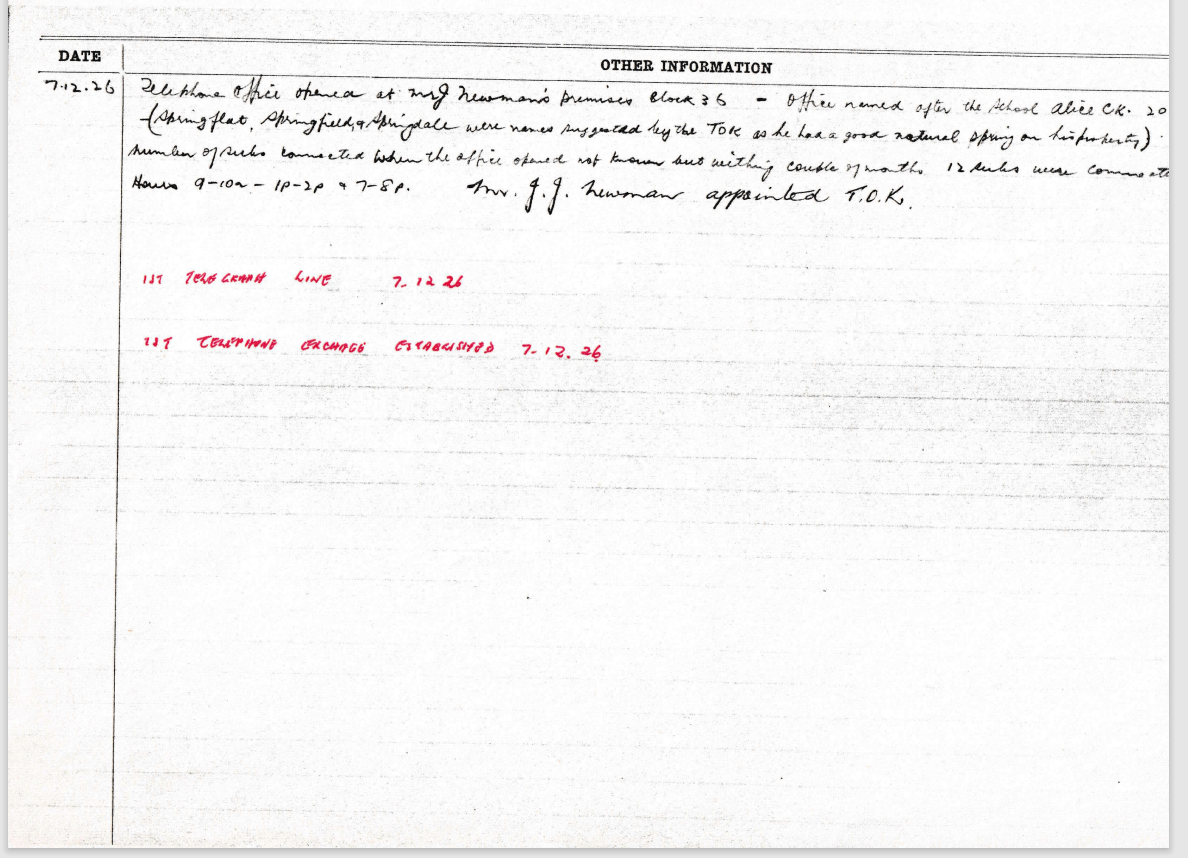 DATE
OTHER INFORMATION
7.12.26 Telephone Office opened at Mr J Newman's premises Block 36 - Office named after the School Alice CK. 20
(Springflat, Springfield, & Springdale were names suggested by the TOK as he had a good natural spring on his property).
Number of subs connected when the office opened not known but withing couple of months 12 subs were connecte
Hours 9-10a - 1p-2p & 7-8p. Mr. J. J. Newman appointed T.O.K.
1ST TELEGRAPH LINE 7.12 26
1ST TELEPHONE EXCHAGE ESTABLISHED 7.12.26